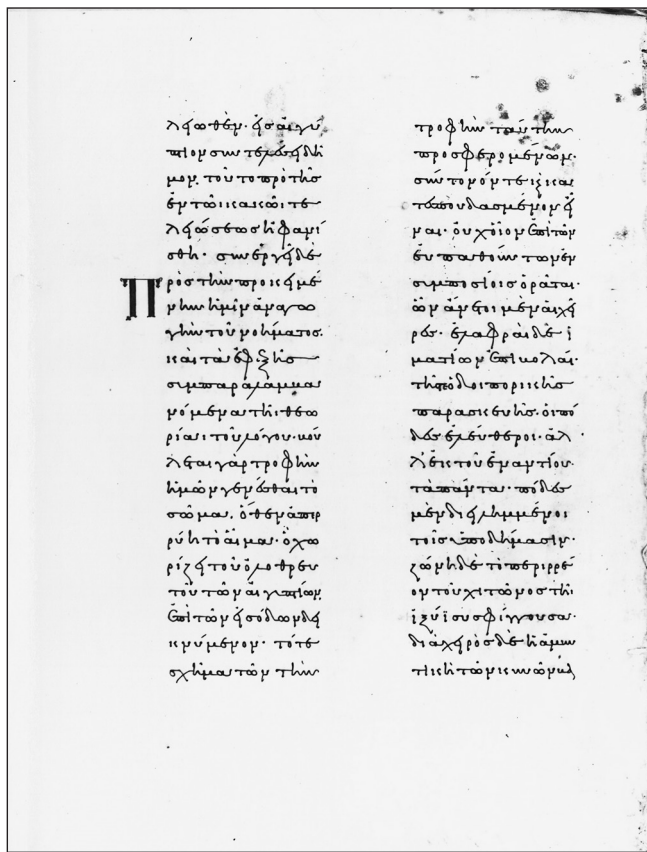 λειωθὲν· εἰς αἰγύ
πτιον συντελέσει δῆ
μον. τοῦτο πρὸ τῆς
ἐν τῶι κακῶι τε
λειώσεως ἠφανί
σθη· συνεργεῖ δὲ
πρὸς τὴν προικειμέ
νην ἡμῖν ἀναγω
γὴν τοῦ νοήματος.
καὶ τὰ ἐφεξῆς
συμπαραλαμβα
νόμενα τῆι θεω
ρίαι τοῦ λόγου· βού
λεται γὰρ τροφὴν
ἡμῶν γενέσθαι τὸ
σῶμα. ὅθεν ἀπερ
ρύη τὸ αἷμα· ὃ χω
ρίζει τοῦ ὀλοθρευ
τοῦ τῶν αἰγυπτίων
ἐπὶ τῶν εἰσόδων δει
κνύμενον· τό τε
σχῆμα τῶν τὴν
τροφὴν ταύτην
προσφερομένων·
σύντονόν τε καὶ
ἐσπουδασμένον εἶ
ναι· οὐχ οἷον ἐπὶ τῶν
εὐπαθούντων ἐν
συμποσίοις ὁρᾶται·
ὧν ἄνετοι μὲν αἱ χεῖ
ρες· ἐλαφραὶ δὲ ἱ
ματίων ἐπιβολαί·
τῆς ὁδοιπορικῆς
παρασκευῆς· οἱ πό
δες ἐλεύθεροι· ἀλ
λ' ἐκ τοῦ ἐναντίου
τὰ πάντα· πόδες
μὲν διειλημμένοι
τοῖς ὑποδήμασιν·
ζώνη δὲ τὸ περιρρέ
ον τοῦ χιτῶνος τῆι
ἰξύϊ συσφίγγουσα·
διὰ χειρὸς δὲ ἡ ἀμυν
τικὴ τῶν κυνῶν